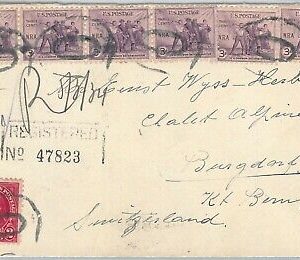 U.S. POSTAGE U.S. POSTAGE U.S. POSTAGE U.S. POSTAGE U.S. POSTAGE
NRA NRA NRA NRA NRA
3¢ 3¢ 3¢ 3¢ 3¢
Ernst Wyss-
Chalet Alpin
REGISTERED
No 47823
Burgdorf
Kt. Bern
Switzerland.